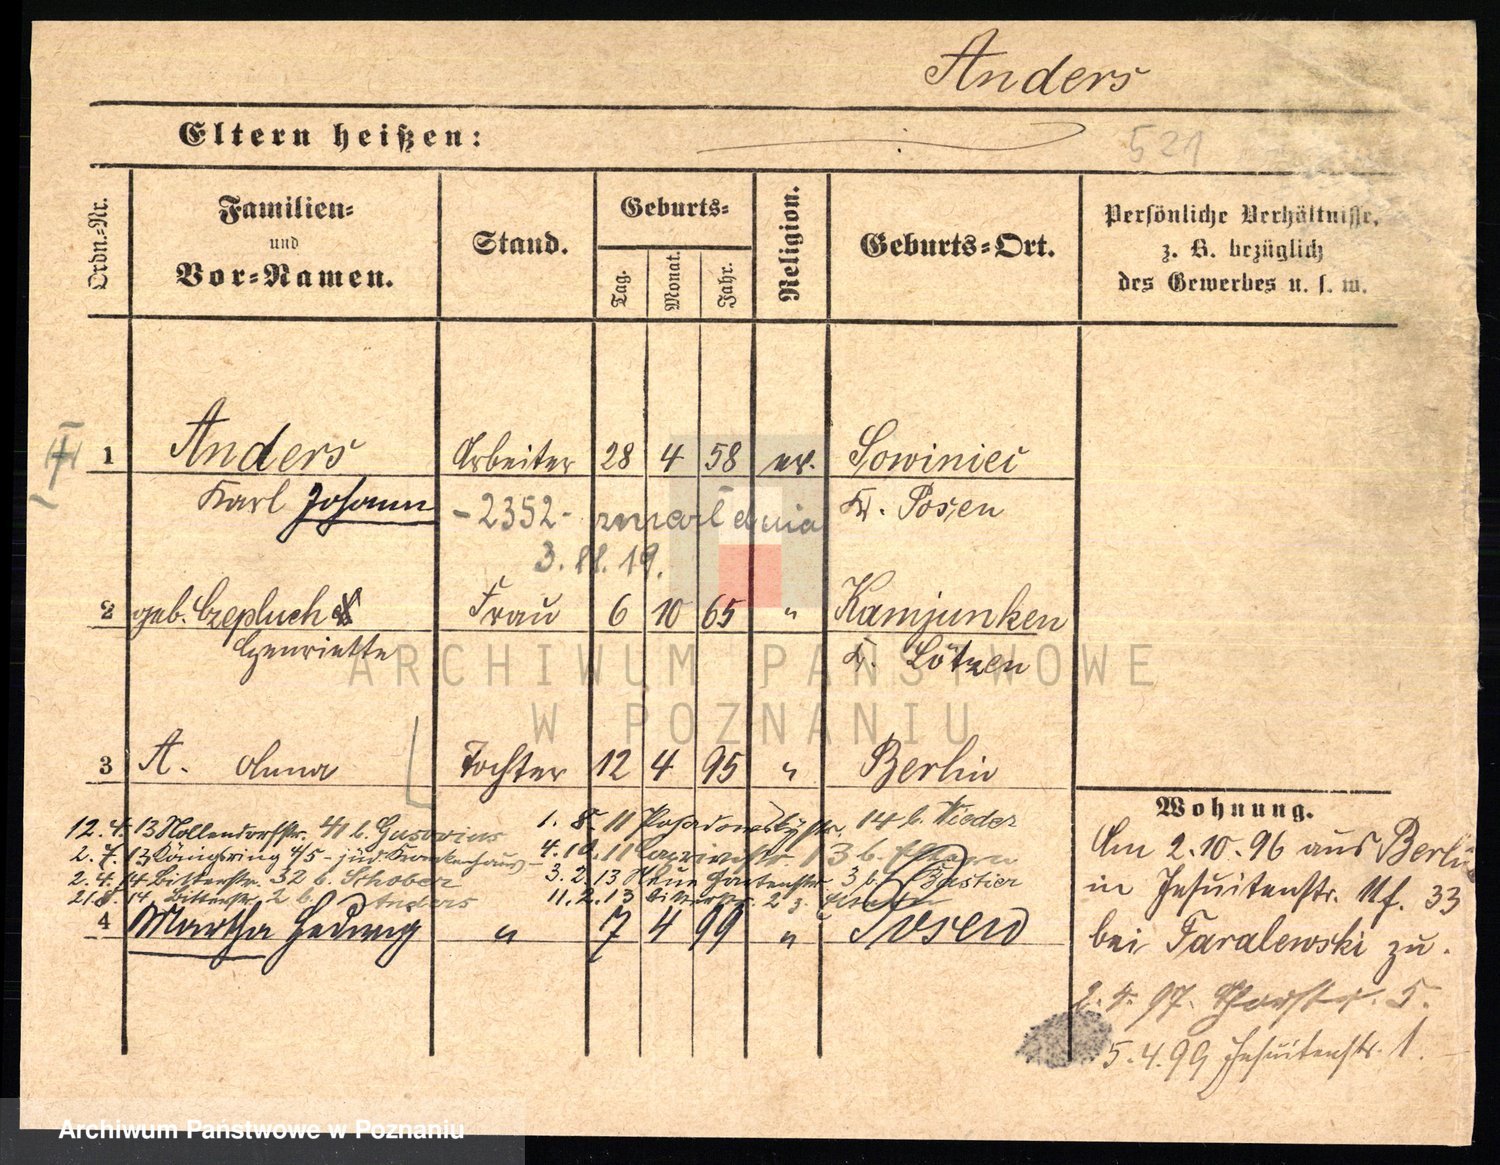 Anders
Eltern heißen:
521
Ordn.-Nr.
Familien-
und
Vor-Namen.
Stand.
Geburts-
Tag.
Monat.
Jahr.
Religion.
Geburts-Ort.
Persönliche Verhältnisse,
z. B. bezüglich
des Gewerbes u. s. w.
1 Anders Arbeiter 28 4 58 ev. Sowiniec
Karl Johann Kr. Posen
-2352- zmarł dnia
3. 11. 19.
2 geb. Czepluch Frau 6 10 65 " Kamjunken
Henriette Kr. Lötzen
3 A. Anna Tochter 12 4 95 " Berlin
12. 4. 13 Nollendorfstr. 41 b. Gusovius
2. 7. 13 Königsring 4/5 - jüd Krankenhaus
2. 4. 14 Bitterstr. 32 b. Schober
21. 8. 14 Bitterstr. 2 b. Anders
1. 8. 11 Posadowskystr. 14 b. Nieder
4. 10. 11 Caprivistr. 13 b. Eltern
3. 2. 13 Neue Gartenstr. 3 b.
11. 2. 13
4 Martha Hedwig " 7 4 99 " Posen
Wohnung.
Am 2.10.96 aus Berlin
in Jesuitenstr. 11 f. 33
bei Taralewski zu.
2. 4. 97. 5.
5.4.99 Jesuitenstr. 1.
ARCHIWUM PAŃSTWOWE
W POZNANIU
Archiwum Państwowe w Poznaniu